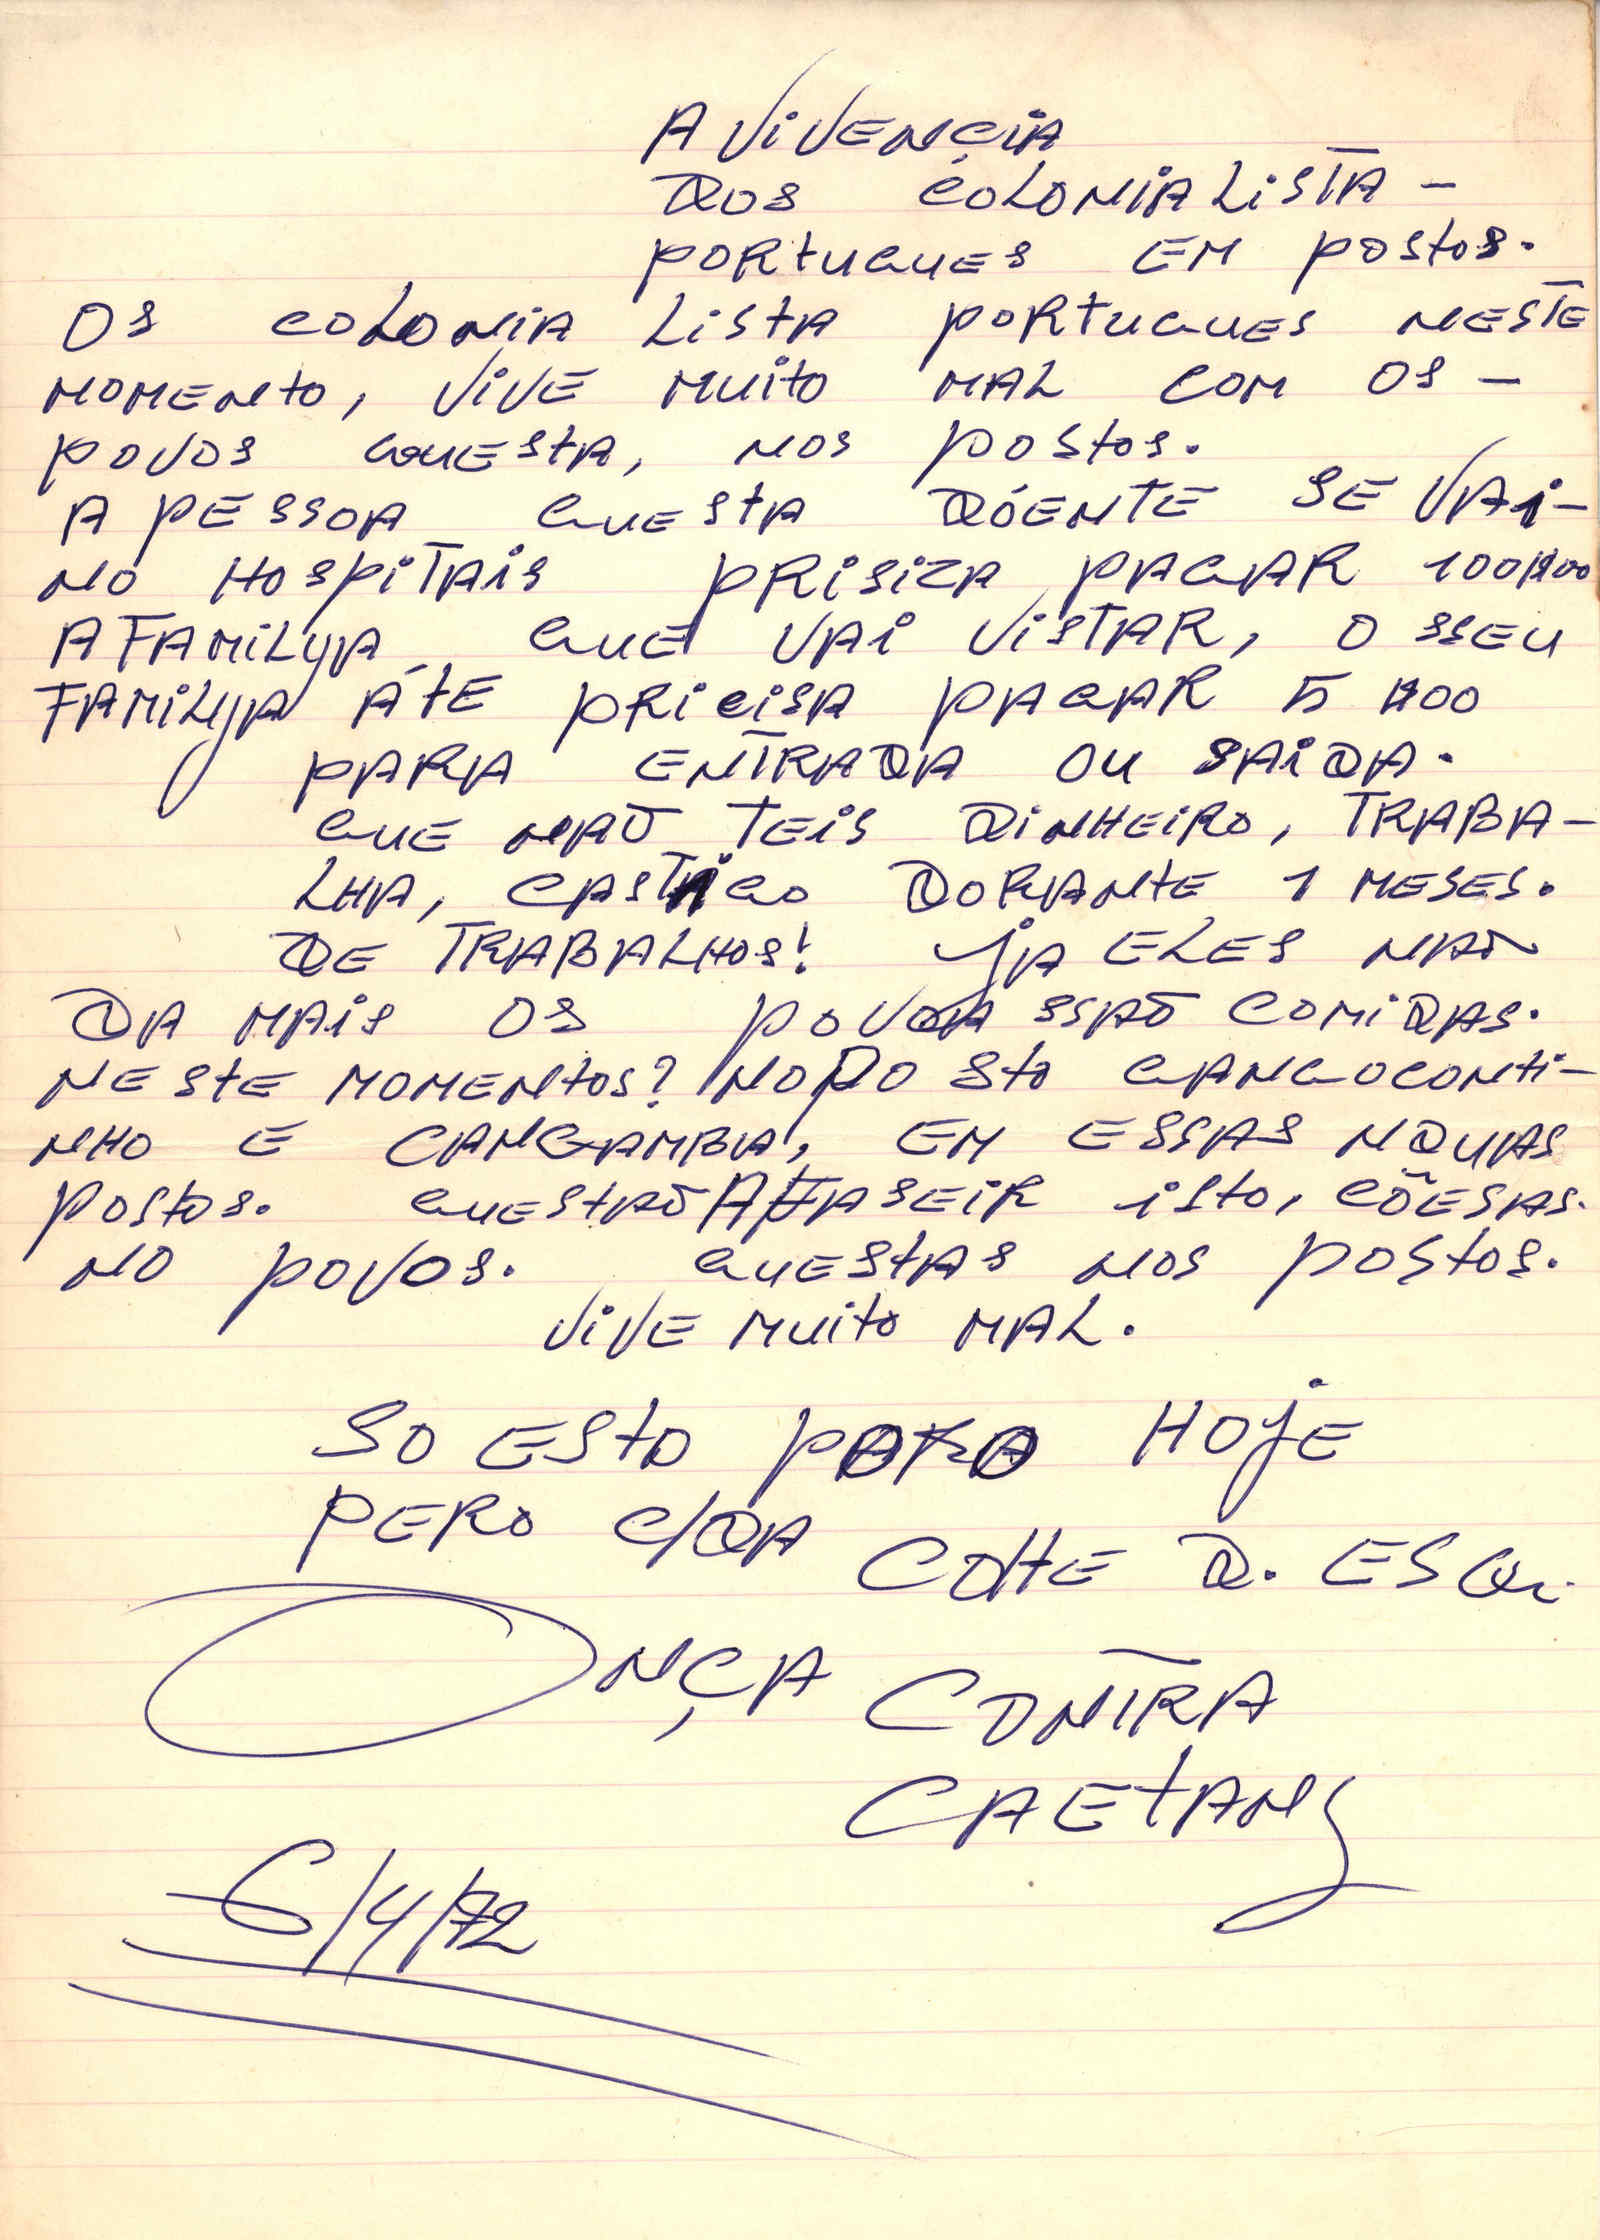 A VIVENÇIA
DOS COLONIALISTA -
PORTUGUES EM POSTOS.
OS COLONIA LISTA PORTUGUES NESTE
MOMENTO, VIVE MUITO MAL COM OS -
POVOS QUESTA, NOS POSTOS.
A PESSOA QUESTA DÓENTE SE VAI-
NO HOSPITAIS PRISIZA PAGAR 100$00
A FAMILYA QUE VAI VISTAR, O SSEU
FAMILYA ÁTE PRICISA PAGAR 5 $00
PARA ENTRADA OU SAIDA.
QUE NAO TEIS DINHEIRO, TRABA-
LHA, CASTIGO DORANTE 1 MESES.
DE TRABALHOS! JA ELES NAO
DA MAIS OS SSAO COMIDAS.
NESTE MOMENTOS? NO POSTO GANGOCONTI-
NHO E CANGAMBA, EM ESSAS NDUAS
POSTOS. QUESTAO A FASEIR ISTO, CÕESAS.
NO POVOS. QUESTAS NOS POSTOS.
VIVE MUITO MAL.
SO ESTO PARA HOJE
PERO C/DA COTTE D. ESQ.
ONÇA CONTRA
CAETANO
6/4/72